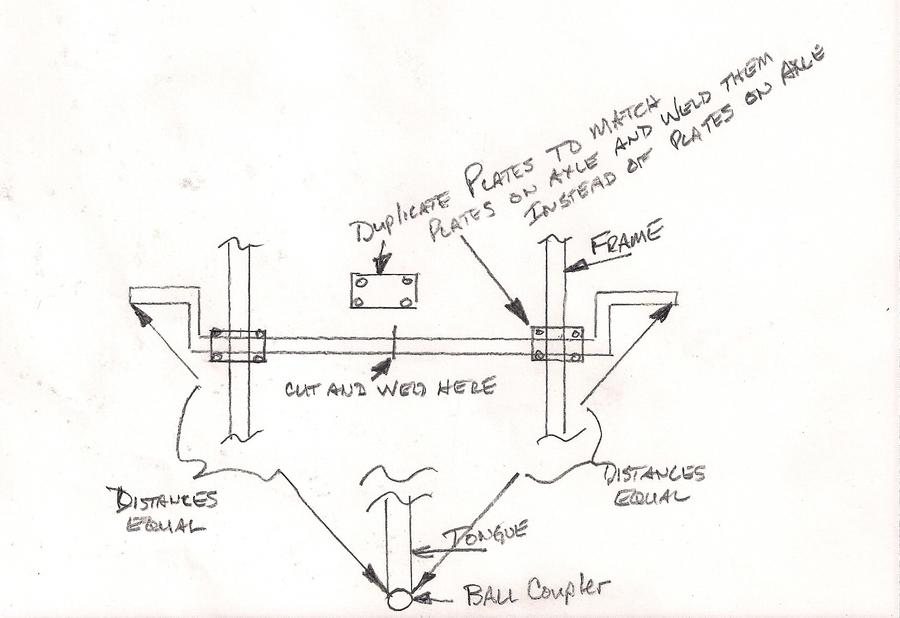 Duplicate Plates to match
Plates on axle and weld them
Instead of plates on axle
Frame
Cut and weld here
Distances
equal
Distances
equal
Tongue
Ball Coupler